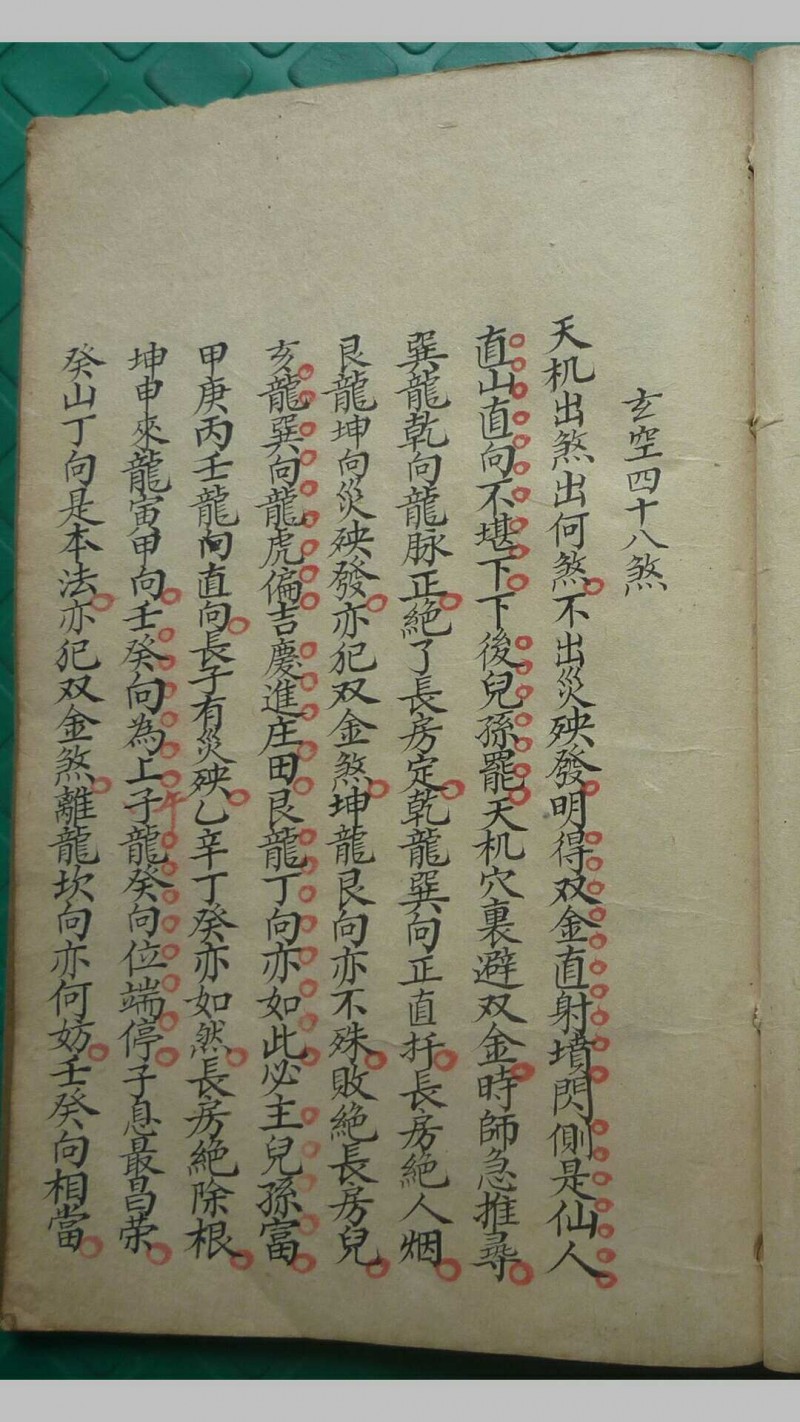 玄空四十八煞
天机出煞出何煞不出災殃發明得双金直射墳閃側是仙人
直山直向不堪下下後兒孫罷天机穴裏避双金時師急推尋
巽龍乾向龍脉正絕了長房定乾龍巽向正直扦長房絕人烟
艮龍坤向災殃發亦犯双金煞坤龍艮向亦不殊敗絕長房兒
亥龍巽向龍虎偏吉慶進庄田艮龍丁向亦如此必主兒孫富
甲庚丙壬龍向直向長子有災殃乙辛丁癸亦如然長房絕除根
坤申來龍寅甲向壬癸向為上子午龍癸向位端停子息最昌荣
癸山丁向是本法亦犯双金煞離龍坎向亦何妨壬癸向相當